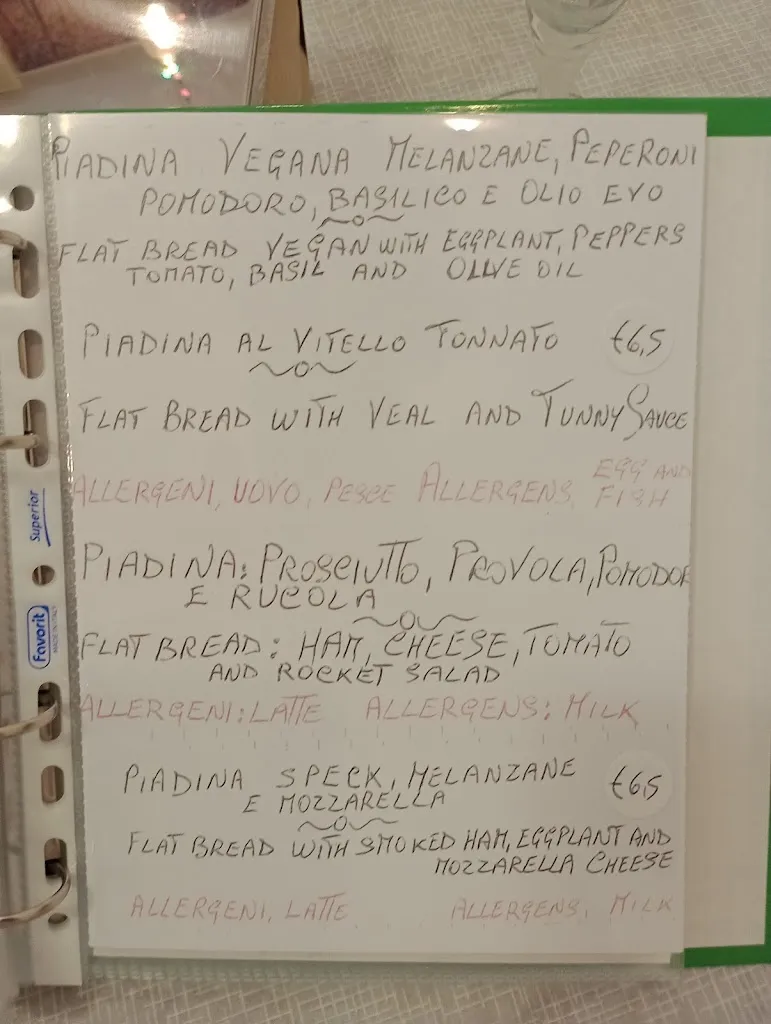 PIADINA VEGANA MELANZANE, PEPERONI
POMODORO, BASILICO E OLIO EVO
FLAT BREAD VEGAN WITH EGGPLANT, PEPPERS
TOMATO, BASIL AND OLIVE OIL
PIADINA AL VITELLO TONNATO €6,5
FLAT BREAD WITH VEAL AND TUNNY SAUCE
ALLERGENI, UOVO, PESCE ALLERGENS EGG AND
FISH
PIADINA: PROSCIUTTO, PROVOLA, POMODOR
E RUCOLA
FLAT BREAD: HAM, CHEESE, TOMATO
AND ROCKET SALAD
ALLERGENI: LATTE ALLERGENS: MILK
PIADINA SPECK, MELANZANE €6,5
E MOZZARELLA
FLAT BREAD WITH SMOKED HAM, EGGPLANT AND
MOZZARELLA CHEESE
ALLERGENI, LATTE ALLERGENS, MILK
Superior
Favorit
MADE IN ITALY